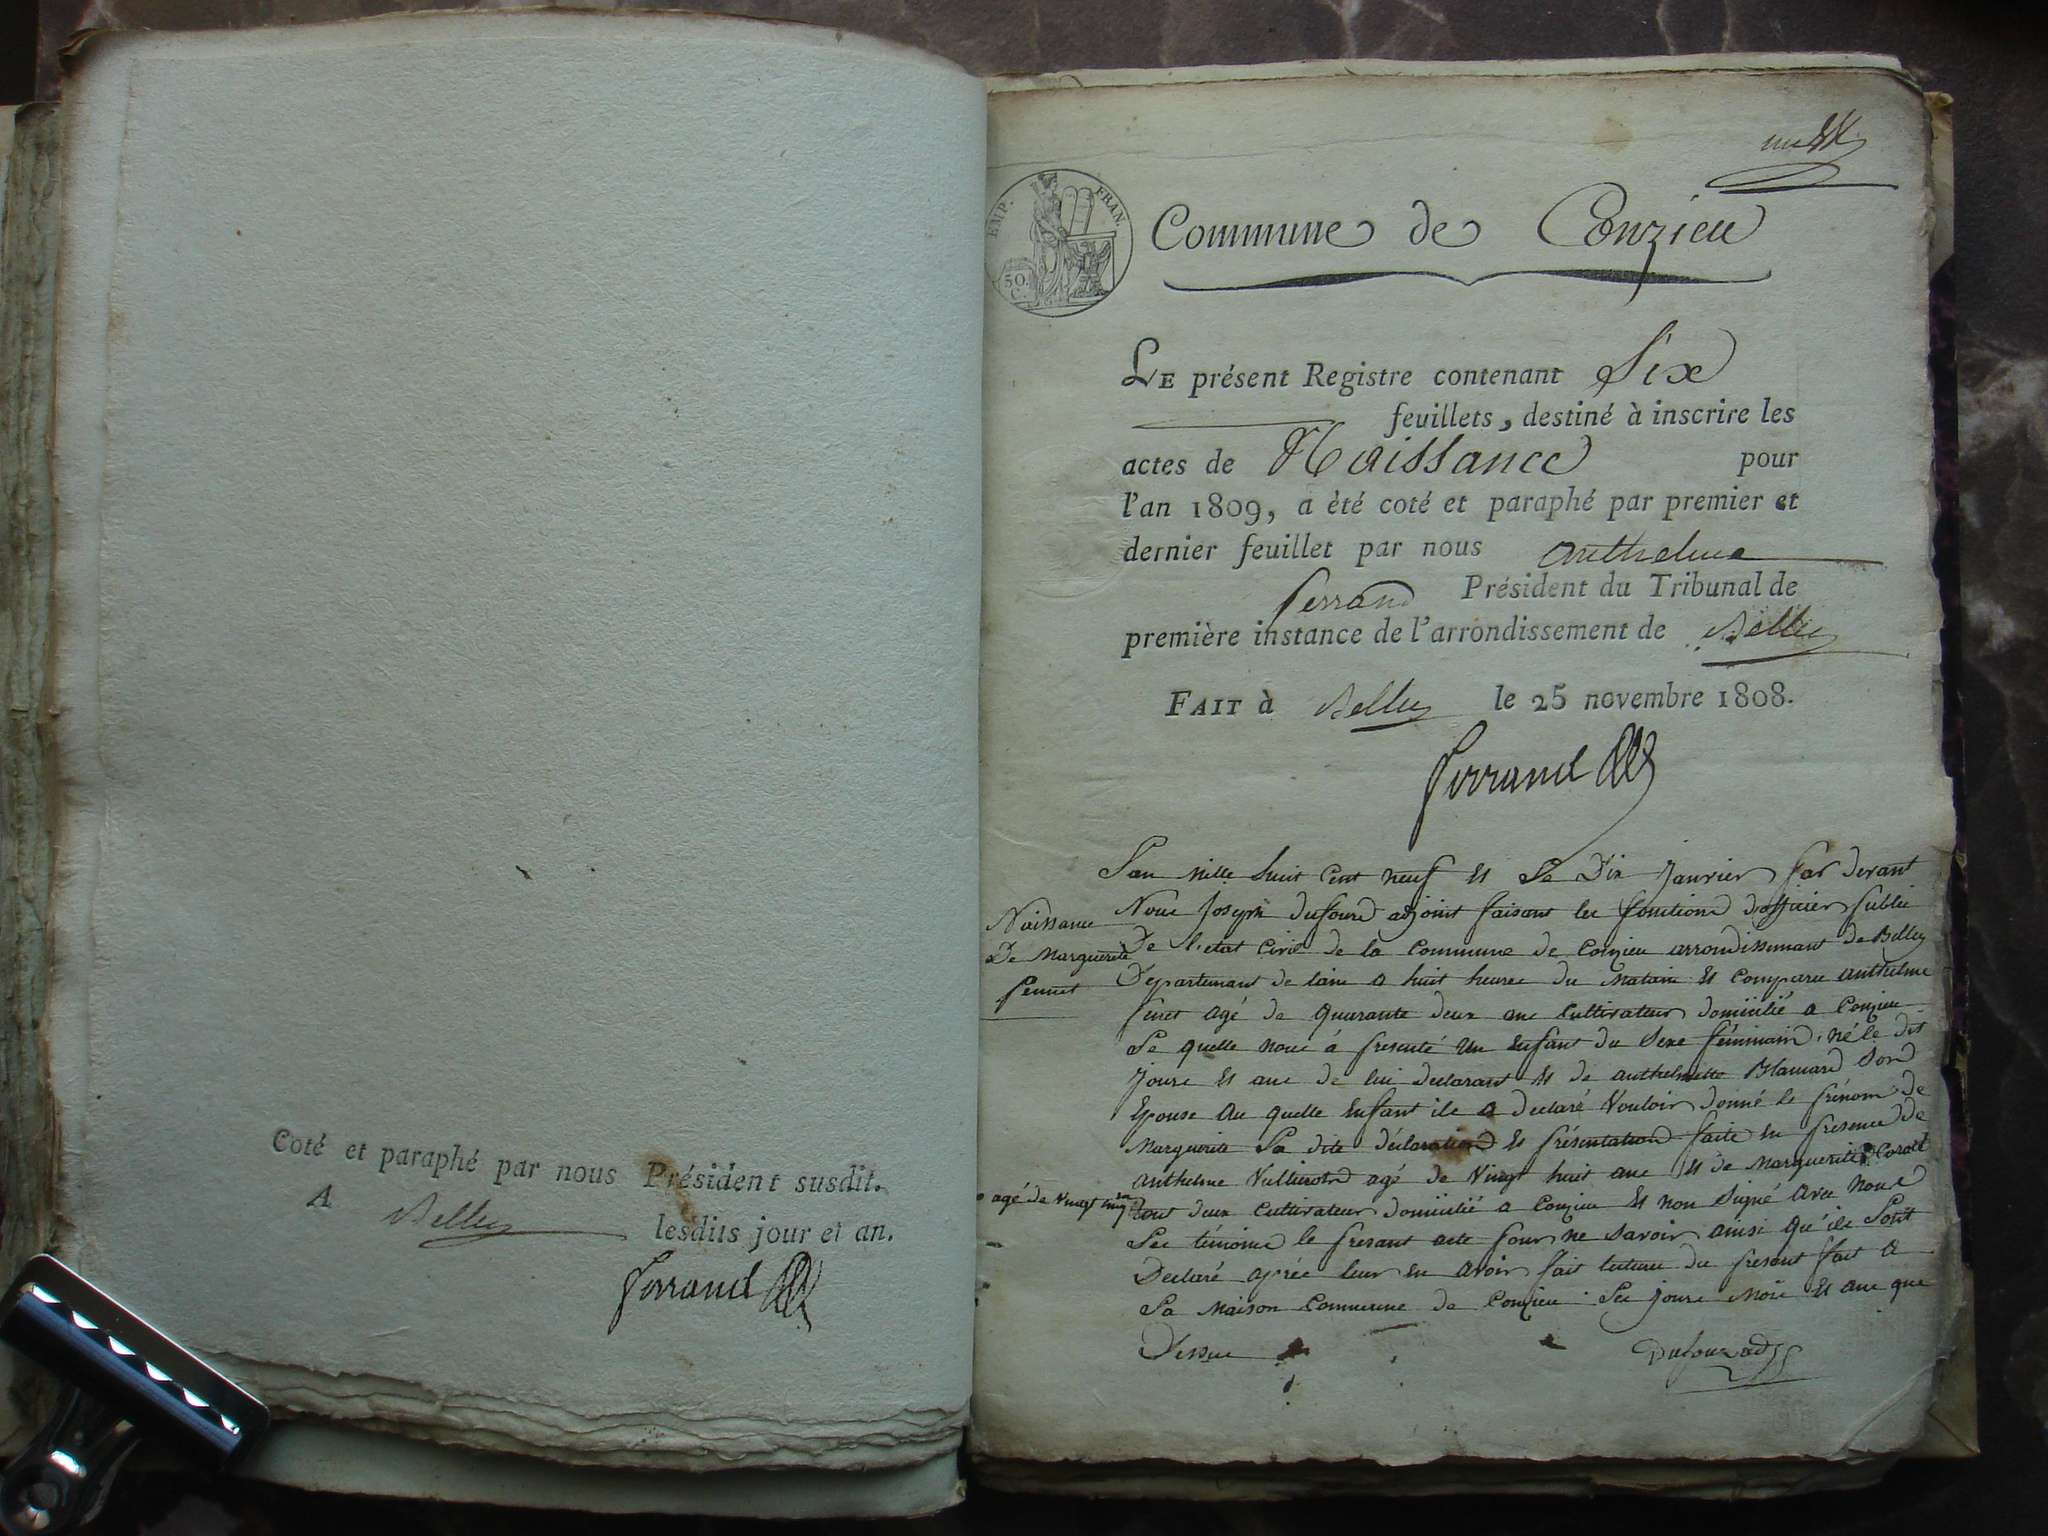 Coté et paraphé par nous Président susdit.
A Belley lesdits jour et an.
Ferrand
EMP. FRAN.
50. C.
Commune de Conzieu
LE présent Registre contenant Six
feuillets, destiné à inscrire les
actes de Naissance pour
l'an 1809, a èté coté et paraphé par premier et
dernier feuillet par nous anthelme
ferrand Président du Tribunal de
première instance de l'arrondissement de Belley
FAIT à Belley le 25 novembre 1808.
Ferrand
Naissance
De Marguerite
fenuet
L'an mille huit Cent neuf et Le Dix Janvier par devant
Nous Joseph dufour adjoint faisant les fonctions d'officier public
De l'etat Civil de la Commune de Conzieu arrondissemant de Belley
Departemant de lain a huit heures du Matain Es Comparu anthelme
agé de quarante deux ans Cultivateur domicilié a Conzieu
Le quelle nous á presenté un Enfant du Sexe féminain, né le dit
Jours Et an de lui declarant Et de anthelmette Blamard Son
Epouse Au quelle Enfant ile a declaré Vouloir donné le prénom de
Marguerite La dite déclaration Et présentation faite en presence de
anthelme agé de Vingt huit ans Et de Marguerite
agé de Vingt cinq ans
tous deux Cultivateurs domicilié a Conzieu Et non Signé Avec nous
Les témoins le presant acte pour ne savoir ainsi qu'ils
Declaré aprés leur en avoir fait lecture du presont fait A
La Maison Commune de Conzieu Les jours Mois Et ans que
Dessus
Dufour adj